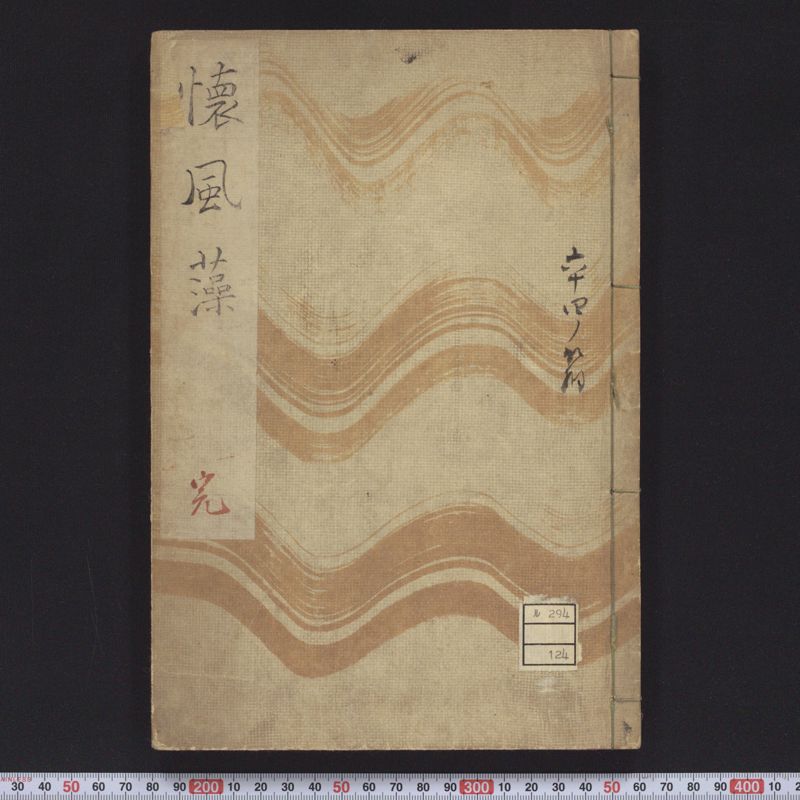 懐風藻
完
六十四ノ箱
ル 294
124
30 40 50 60 70 80 90 200 10 20 30 40 50 60 70 80 90 300 10 20 30 40 50 60 70 80 90 400 10 2